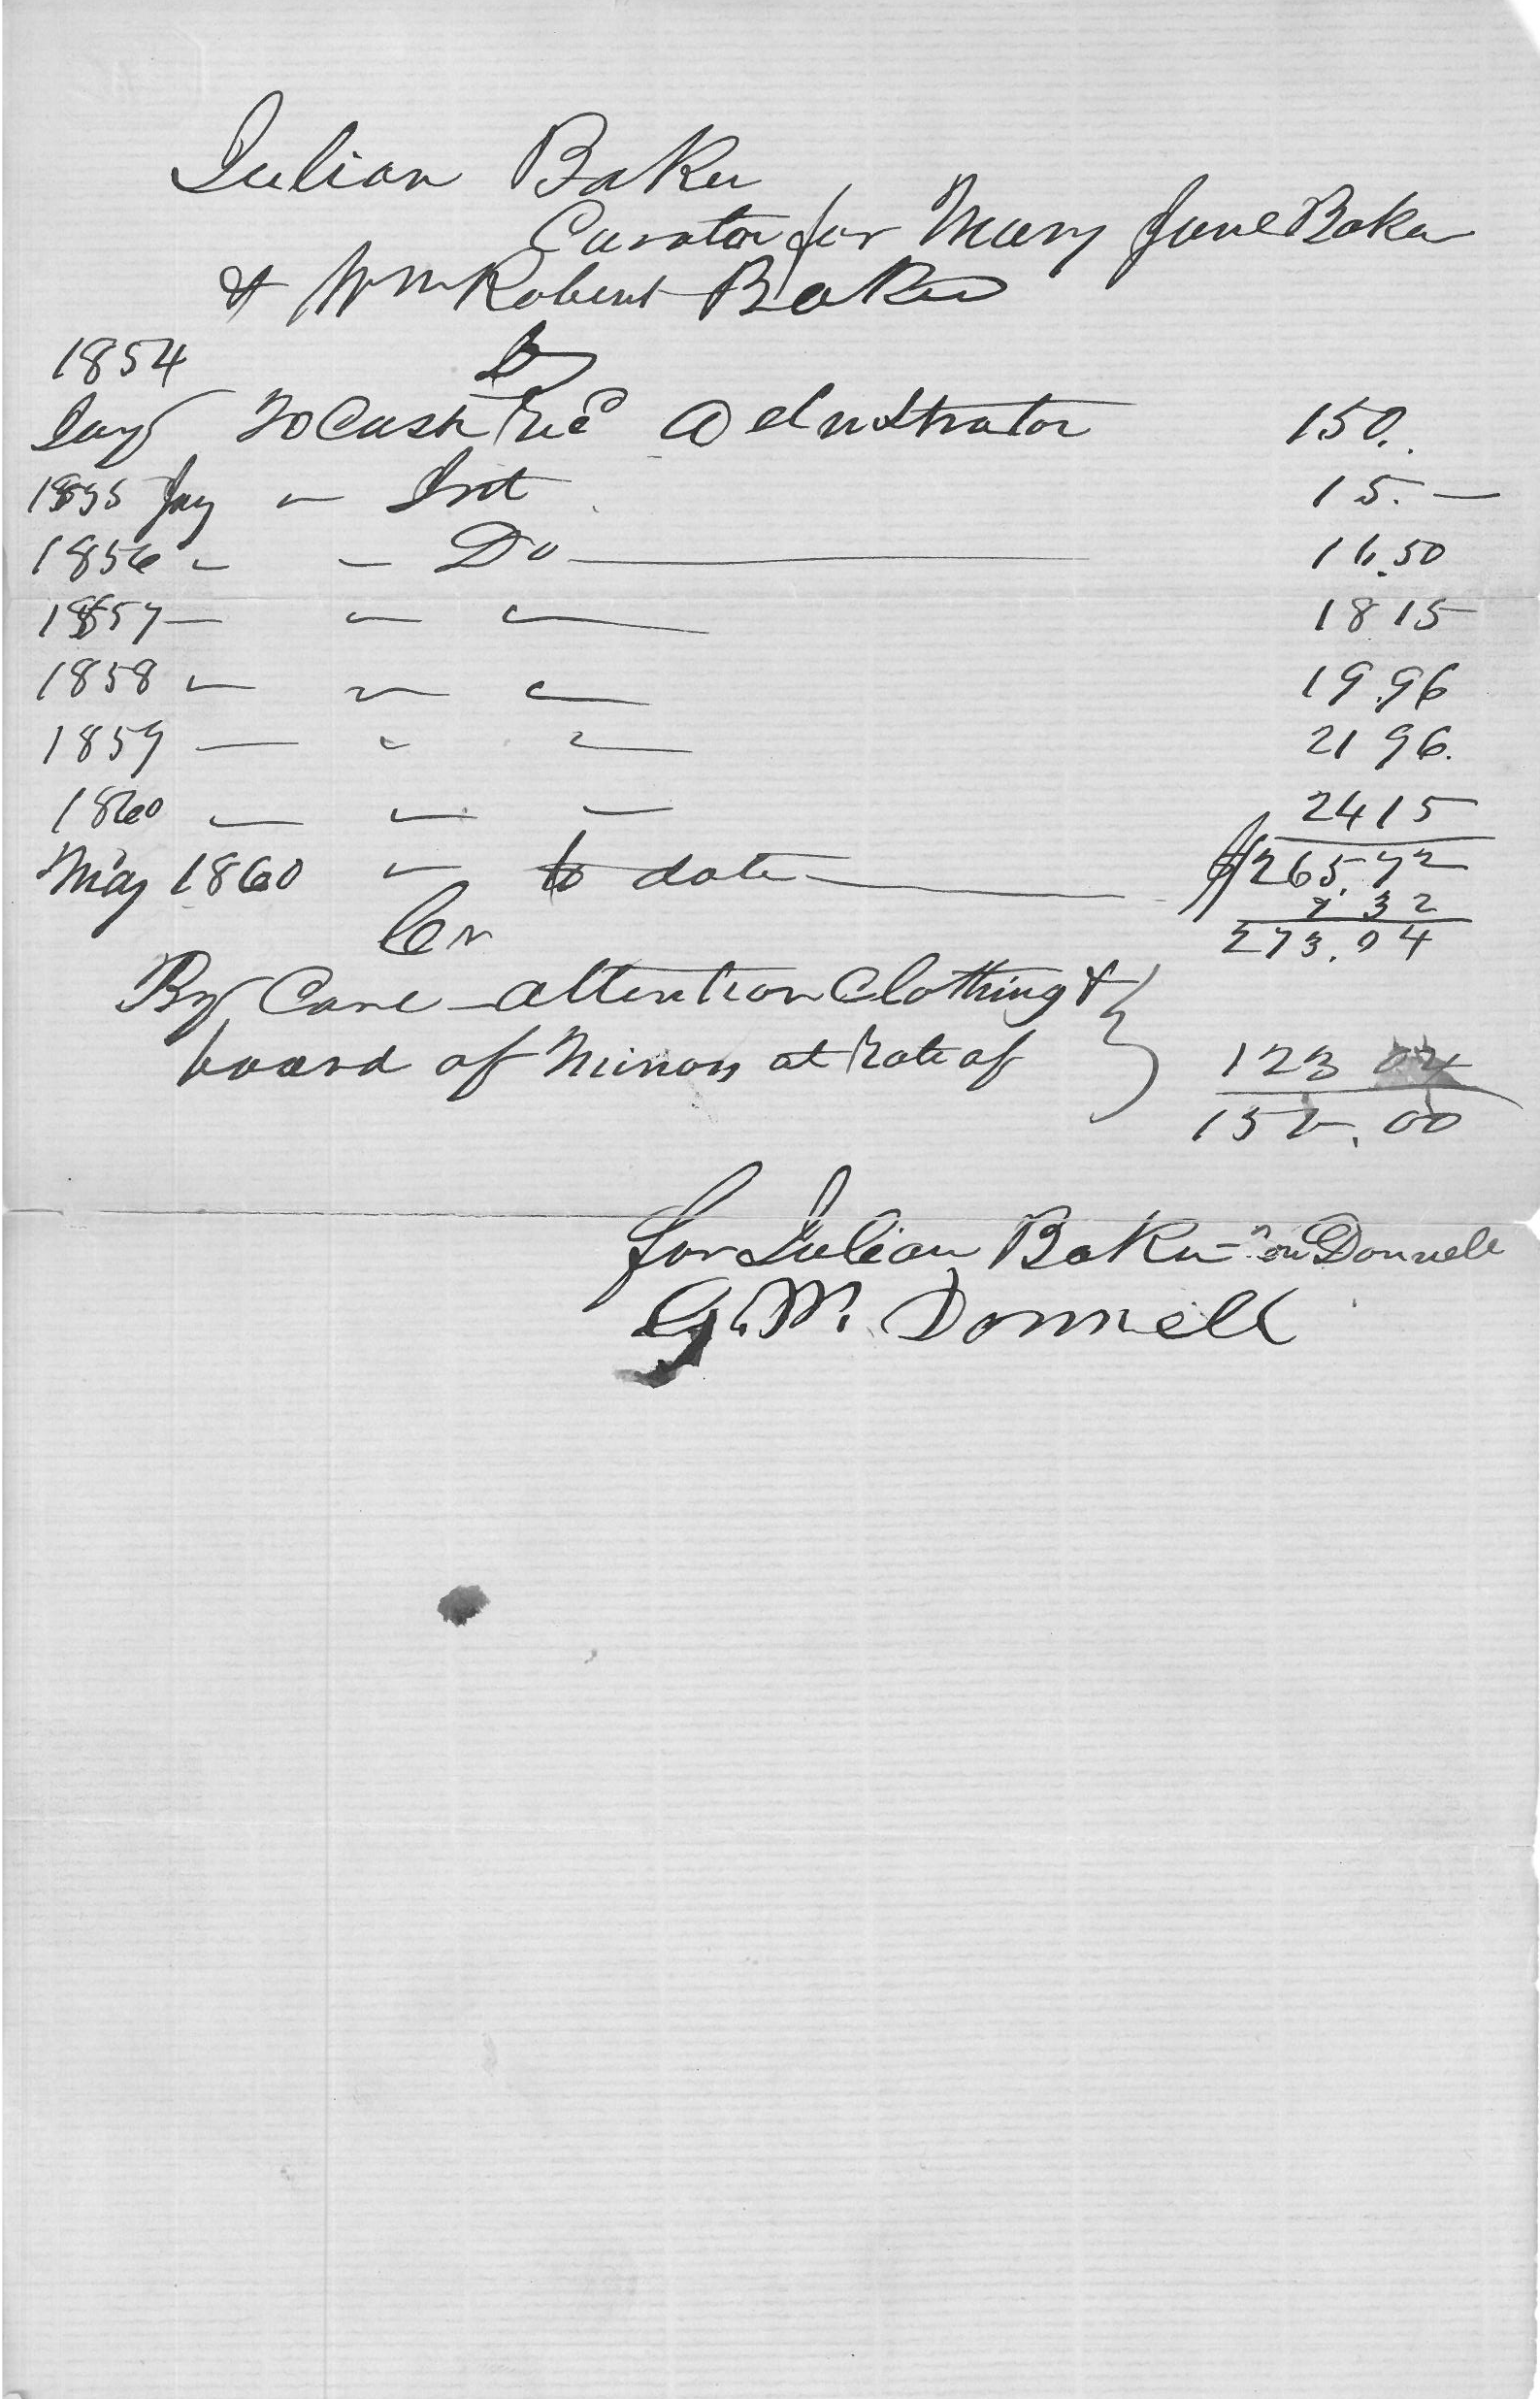 Julian Baker
Curator for Mary Jane Baker
& Wm Robert Baker
1854 Dr
Jany To Cash Recd Admstrator 150.
1855 Jay " Int 15.—
1856 " " Do 16.50
1857 — " " 18 15
1858 " " " 19.96
1859 — " " 21 96.
1860 " " " 24 15
$265.72
May 1860 " to date 7 32
273.04
Cr
By Care attention Clothing &
board of Minors at Rate of 123 04
150.00
for Julian Baker Donnell
G. M. Donnell